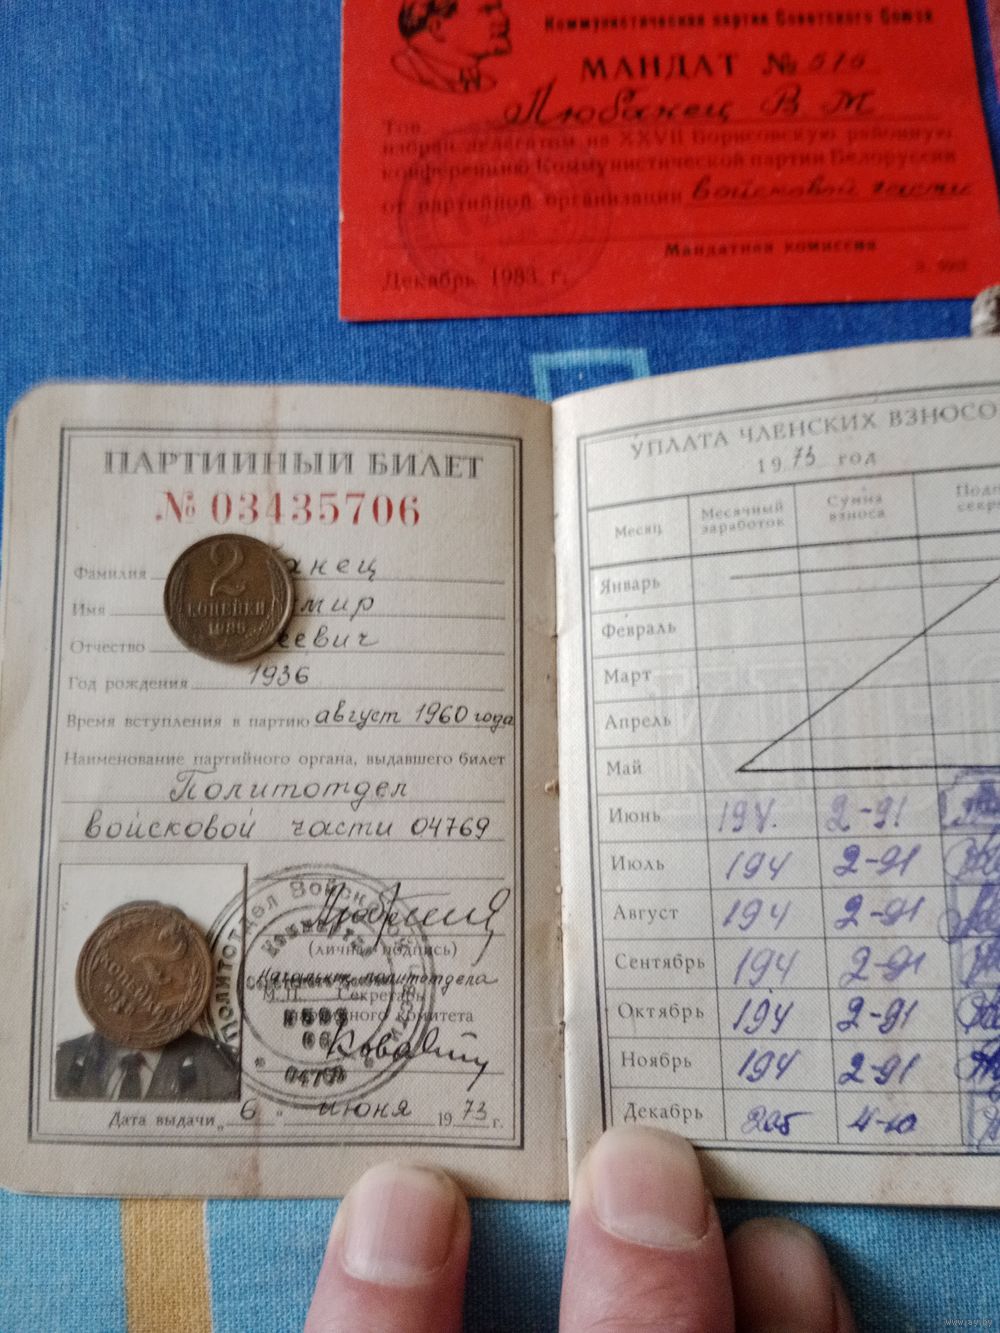 Коммунистическая партия Советского Союза
МАНДАТ № 576
Тов. Любанец В М
избран делегатом на XXVII Борисовскую районную
конференцию Коммунистической партии Белоруссии
от партийной организации войсковой части
Мандатная комиссия
Декабрь 1983 г.
ПАРТИЙНЫЙ БИЛЕТ
№ 03435706
Фамилия анец
Имя мир
Отчество еевич
Год рождения 1936
Время вступления в партию август 1960 года
Наименование партийного органа, выдавшего билет
Политотдел
войсковой части 04769
(личная подпись)
Начальник политотдела
М.П. Секретарь
партийного комитета
Дата выдачи „6" июня 1973 г.
2
КОПЕЙКИ
1986
2
КОПЕЙКИ
Политотдел Войсковой
04769
УПЛАТА ЧЛЕНСКИХ ВЗНОСО
1973 год
Месяц Месячный заработок Сумма взноса Подп секре
Январь
Февраль
Март
Апрель
Май
Июнь 194. 2-91
Июль 194 2-91
Август 194 2-91
Сентябрь 194 2-91
Октябрь 194 2-91
Ноябрь 194 2-91
Декабрь 205 4-10
www.ay.by